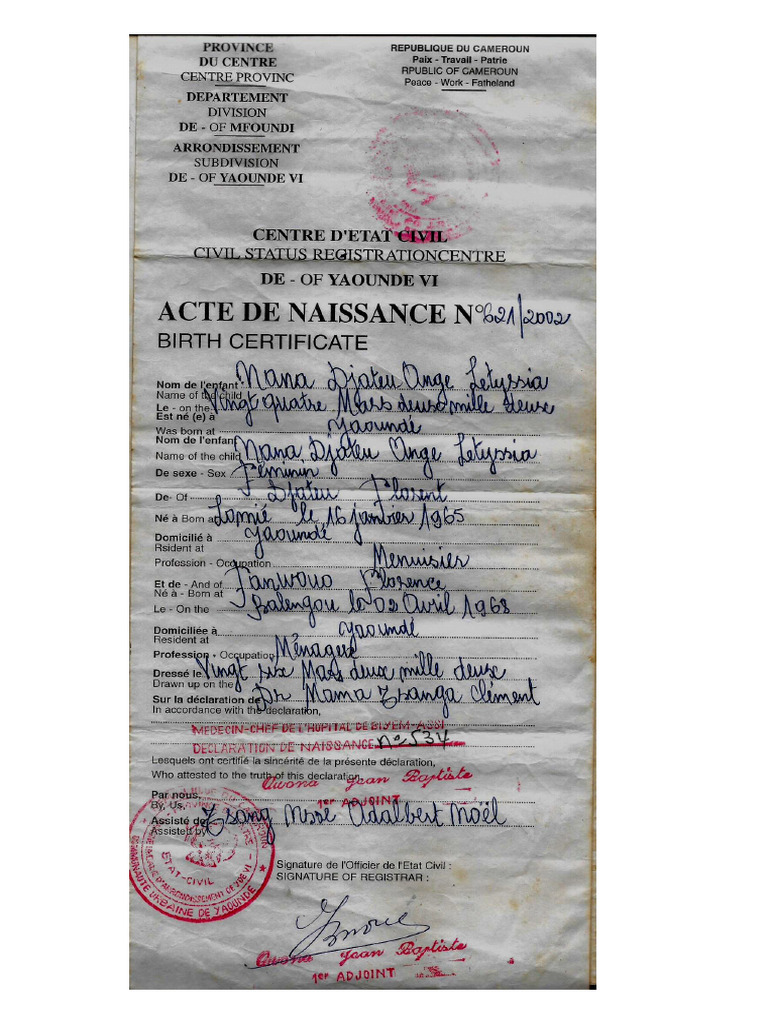 PROVINCE
DU CENTRE
CENTRE PROVINC
DEPARTEMENT
DIVISION
DE - OF MFOUNDI
ARRONDISSEMENT
SUBDIVISION
DE - OF YAOUNDE VI
REPUBLIQUE DU CAMEROUN
Paix - Travail - Patrie
RPUBLIC OF CAMEROUN
Peace - Work - Fatheland
CENTRE D'ETAT CIVIL
CIVIL STATUS REGISTRATIONCENTRE
DE - OF YAOUNDE VI
ACTE DE NAISSANCE N° 621/2002
BIRTH CERTIFICATE
Nom de l'enfant Nana Djateu Ange Letyssia
Name of the child
Le - on the Vingt quatre Mars deux mille deux
Est né (e) à Yaoundé
Was born at
Nom de l'enfant
Name of the child Nana Djateu Ange Letyssia
De sexe - Sex Féminin
De- Of Djateu Florent
Né à Born at Lomié le 16 janvier 1965
Domicilié à Yaoundé
Rsident at
Profession - Occupation Menuisier
Et de - And of Fanwouo Florence
Né à - Born at
Le - On the Balengou le 02 Avril 1968
Domiciliée à Yaoundé
Resident at
Profession - Occupation Ménagère
Dressé le Vingt six Mars deux mille deux
Drawn up on the
Sur la déclaration de Dr Mama Tsanga Clément
In accordance with the declaration,
MEDECIN-CHEF DE L'HOPITAL DE BIYEM-ASSI
DECLARATION DE NAISSANCE N° 534
Lesquels ont certifié la sincérité de la présente déclaration,
Who attested to the truth of this declaration
Owona Jean Baptiste
Par nous, 1er ADJOINT
By, Us,
Assisté de Tsang Adalbert Noël
Assisted by
ETAT-CIVIL
COMMUNAUTÉ URBAINE DE YAOUNDE
Signature de l'Officier de l'Etat Civil :
SIGNATURE OF REGISTRAR :
Owona Jean Baptiste
1er ADJOINT